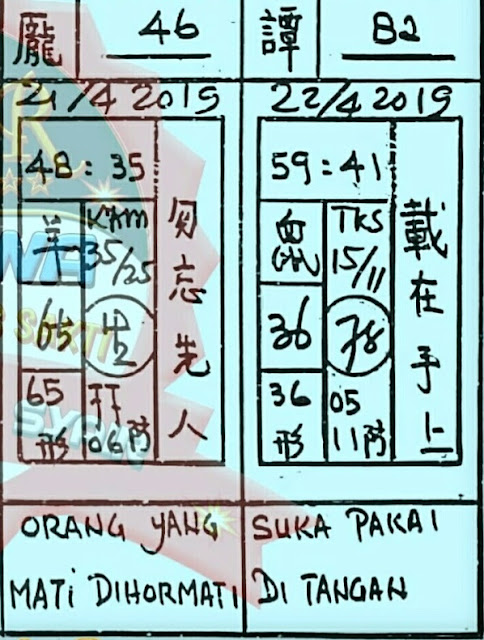 龐 46
21/4 2019
48 : 35
羊
35/25
65
65
形
打
06 防
勿忘先人
ORANG YANG
MATI DIHORMATI
譚 82
22/4 2019
59 : 41
鼠
TKS
15/11
36
78
36
形
05
11 防
載在手上
SUKA PAKAI
DI TANGAN